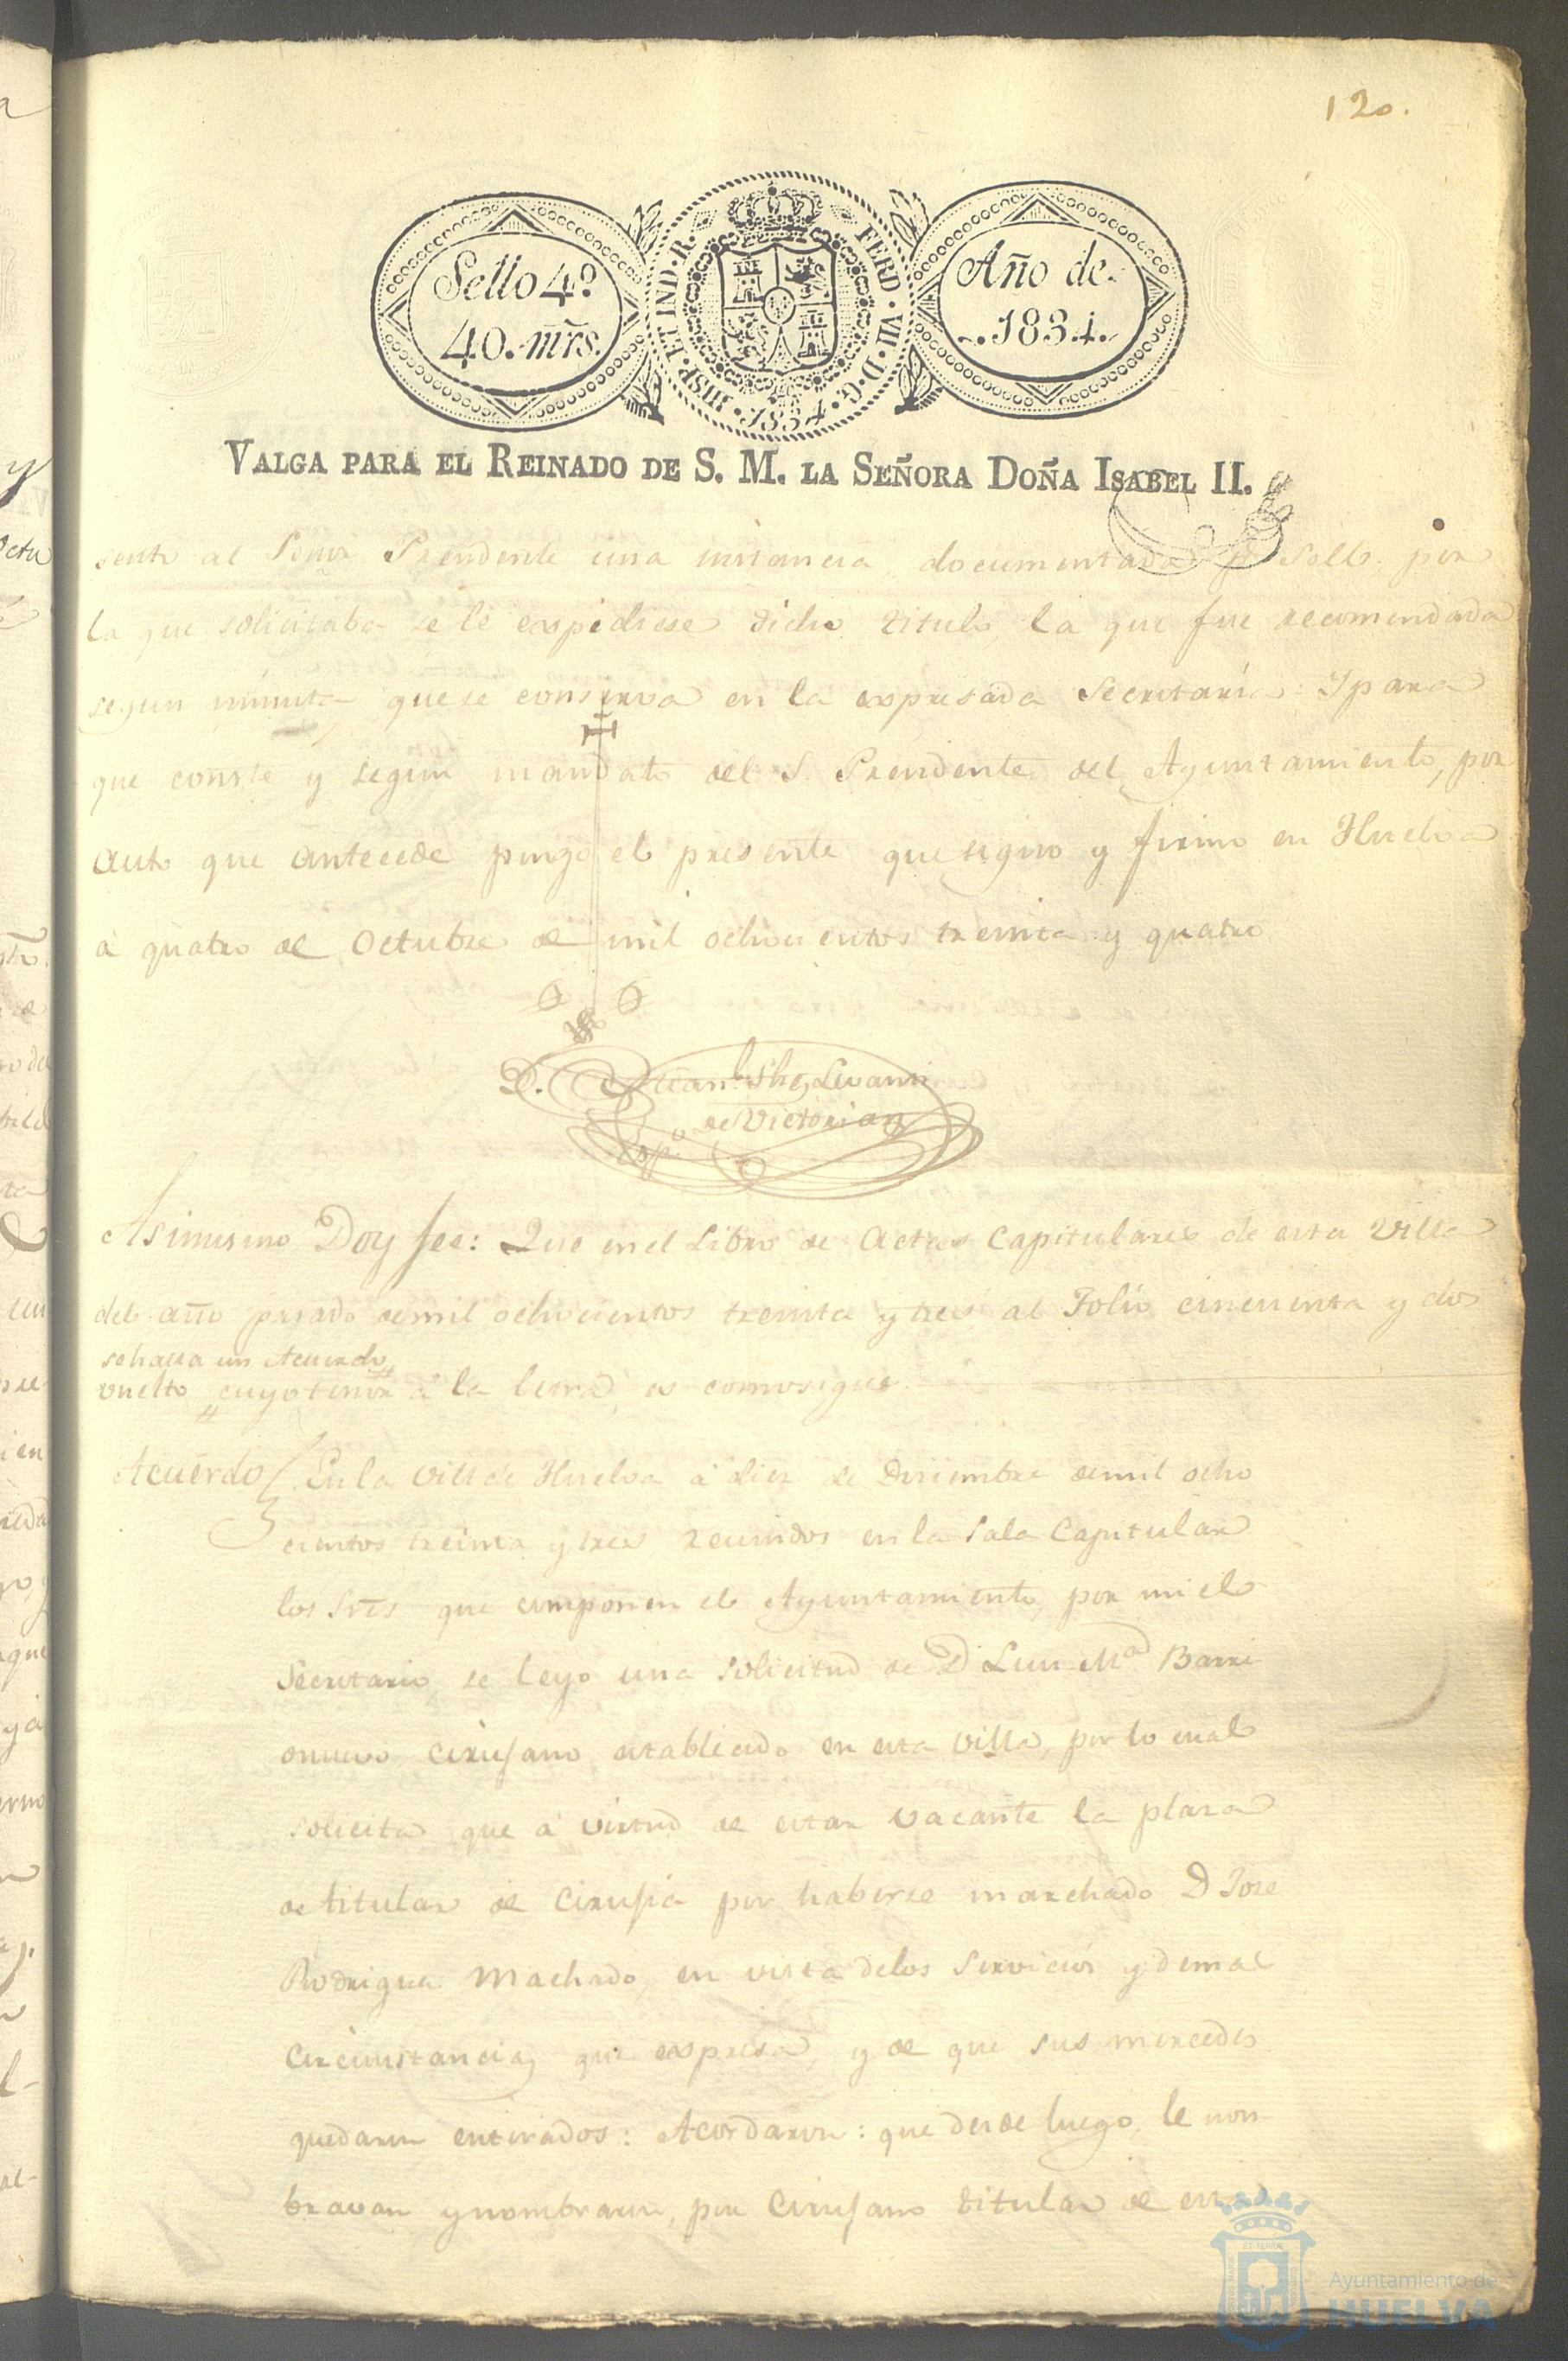 120.
Sello 4º
40. mr̃s.
HISP. ET IND. R. FERD. VII. D. G. 1834.
Año de
1834.
VALGA PARA EL REINADO DE S. M. LA SEÑORA DOÑA ISABEL II.
sente al Señor Presidente una instancia documentada por
la que solicitaba se le expidiese dicho titulo, la que fue recomendada
segun minuta que se conserva en la expresada Secretaría: Y para
que conste y segun mandato del S. Presidente del Ayuntamiento, por
auto que antecede pongo el presente que signo y firmo en Huelva
á quatro de Octubre de mil ochocientos treinta y quatro
D.
de Victorian
Asimismo Doy fee: Que en el Libro de Actas Capitulares de esta Villa
del año pasado de mil ochocientos treinta y tres al Folio cincuenta y dos
se halla un Acuerdo
vuelto cuyo tenor á la letra, es como sigue
Acuerdo En la Villa de Huelva á diez de Diciembre de mil ocho
cientos treinta y tres reunidos en la Sala Capitular
los Srẽs que componen el Ayuntamiento, por mi el
Secretario se leyo una solicitud de D Luis Mª Barri
onuevo cirujano establecido en esta Villa, por lo cual
solicita que á virtud de estar vacante la plaza
de titular de Cirujía por haberse marchado D Jose
Rodriguez Machado, en vista de los Servicios y demas
circunstancias que expresa, y de que sus mercedes
quedaron enterados: Acordaron: que desde luego le non
bravan y nombraron, por Cirujano titular de esta
Ayuntamiento de
HUELVA